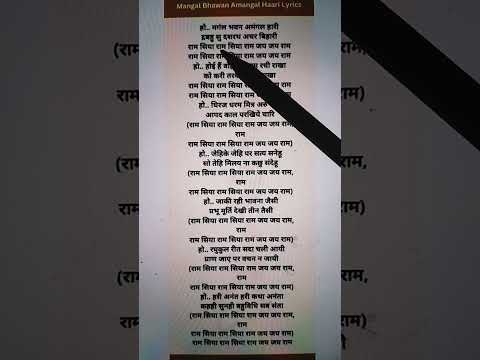 Mangal Bhawan Amangal Haari Lyrics
हो.. मगंल भवन अमंगल हारी
द्रबहु सु दशरथ अचर बिहारी
राम सिया राम सिया राम जय जय राम
राम सिया राम सिया राम जय जय राम
हो.. होई हैं रची राखा
को करी
राम सिया राम सिया जय जय राम
राम सिया राम सिया जय जय राम
हो.. धिरज धरम मित्र
आपद काल परखिये चारि
(राम सिया राम सिया राम जय जय राम,
राम
राम सिया राम सिया राम जय जय राम)
हो.. जेहिके जेहि पर सत्य सनेहू
सो तेहि मिलय ना कछु संदेहू
(राम सिया राम सिया राम जय जय राम,
राम
राम सिया राम सिया राम जय जय राम)
हो.. जाकी रही भावना जैसी
प्रभू मूर्ति देखी तीन तैसी
(राम सिया राम सिया राम जय जय राम,
राम
राम सिया राम सिया राम जय जय राम)
हो.. रघुकुल रीत सदा चली आयी
प्राण जाए पर वचन न जायी
(राम सिया राम सिया राम जय जय राम,
राम
राम सिया राम सिया राम जय जय राम)
हो.. हरी अनंत हरी कथा अनंता
कहही सुनही बहुविधि सब संता
(राम सिया राम सिया राम जय जय राम,
राम
राम सिया राम सिया राम जय जय राम)
राम सिया राम सिया राम जय जय राम